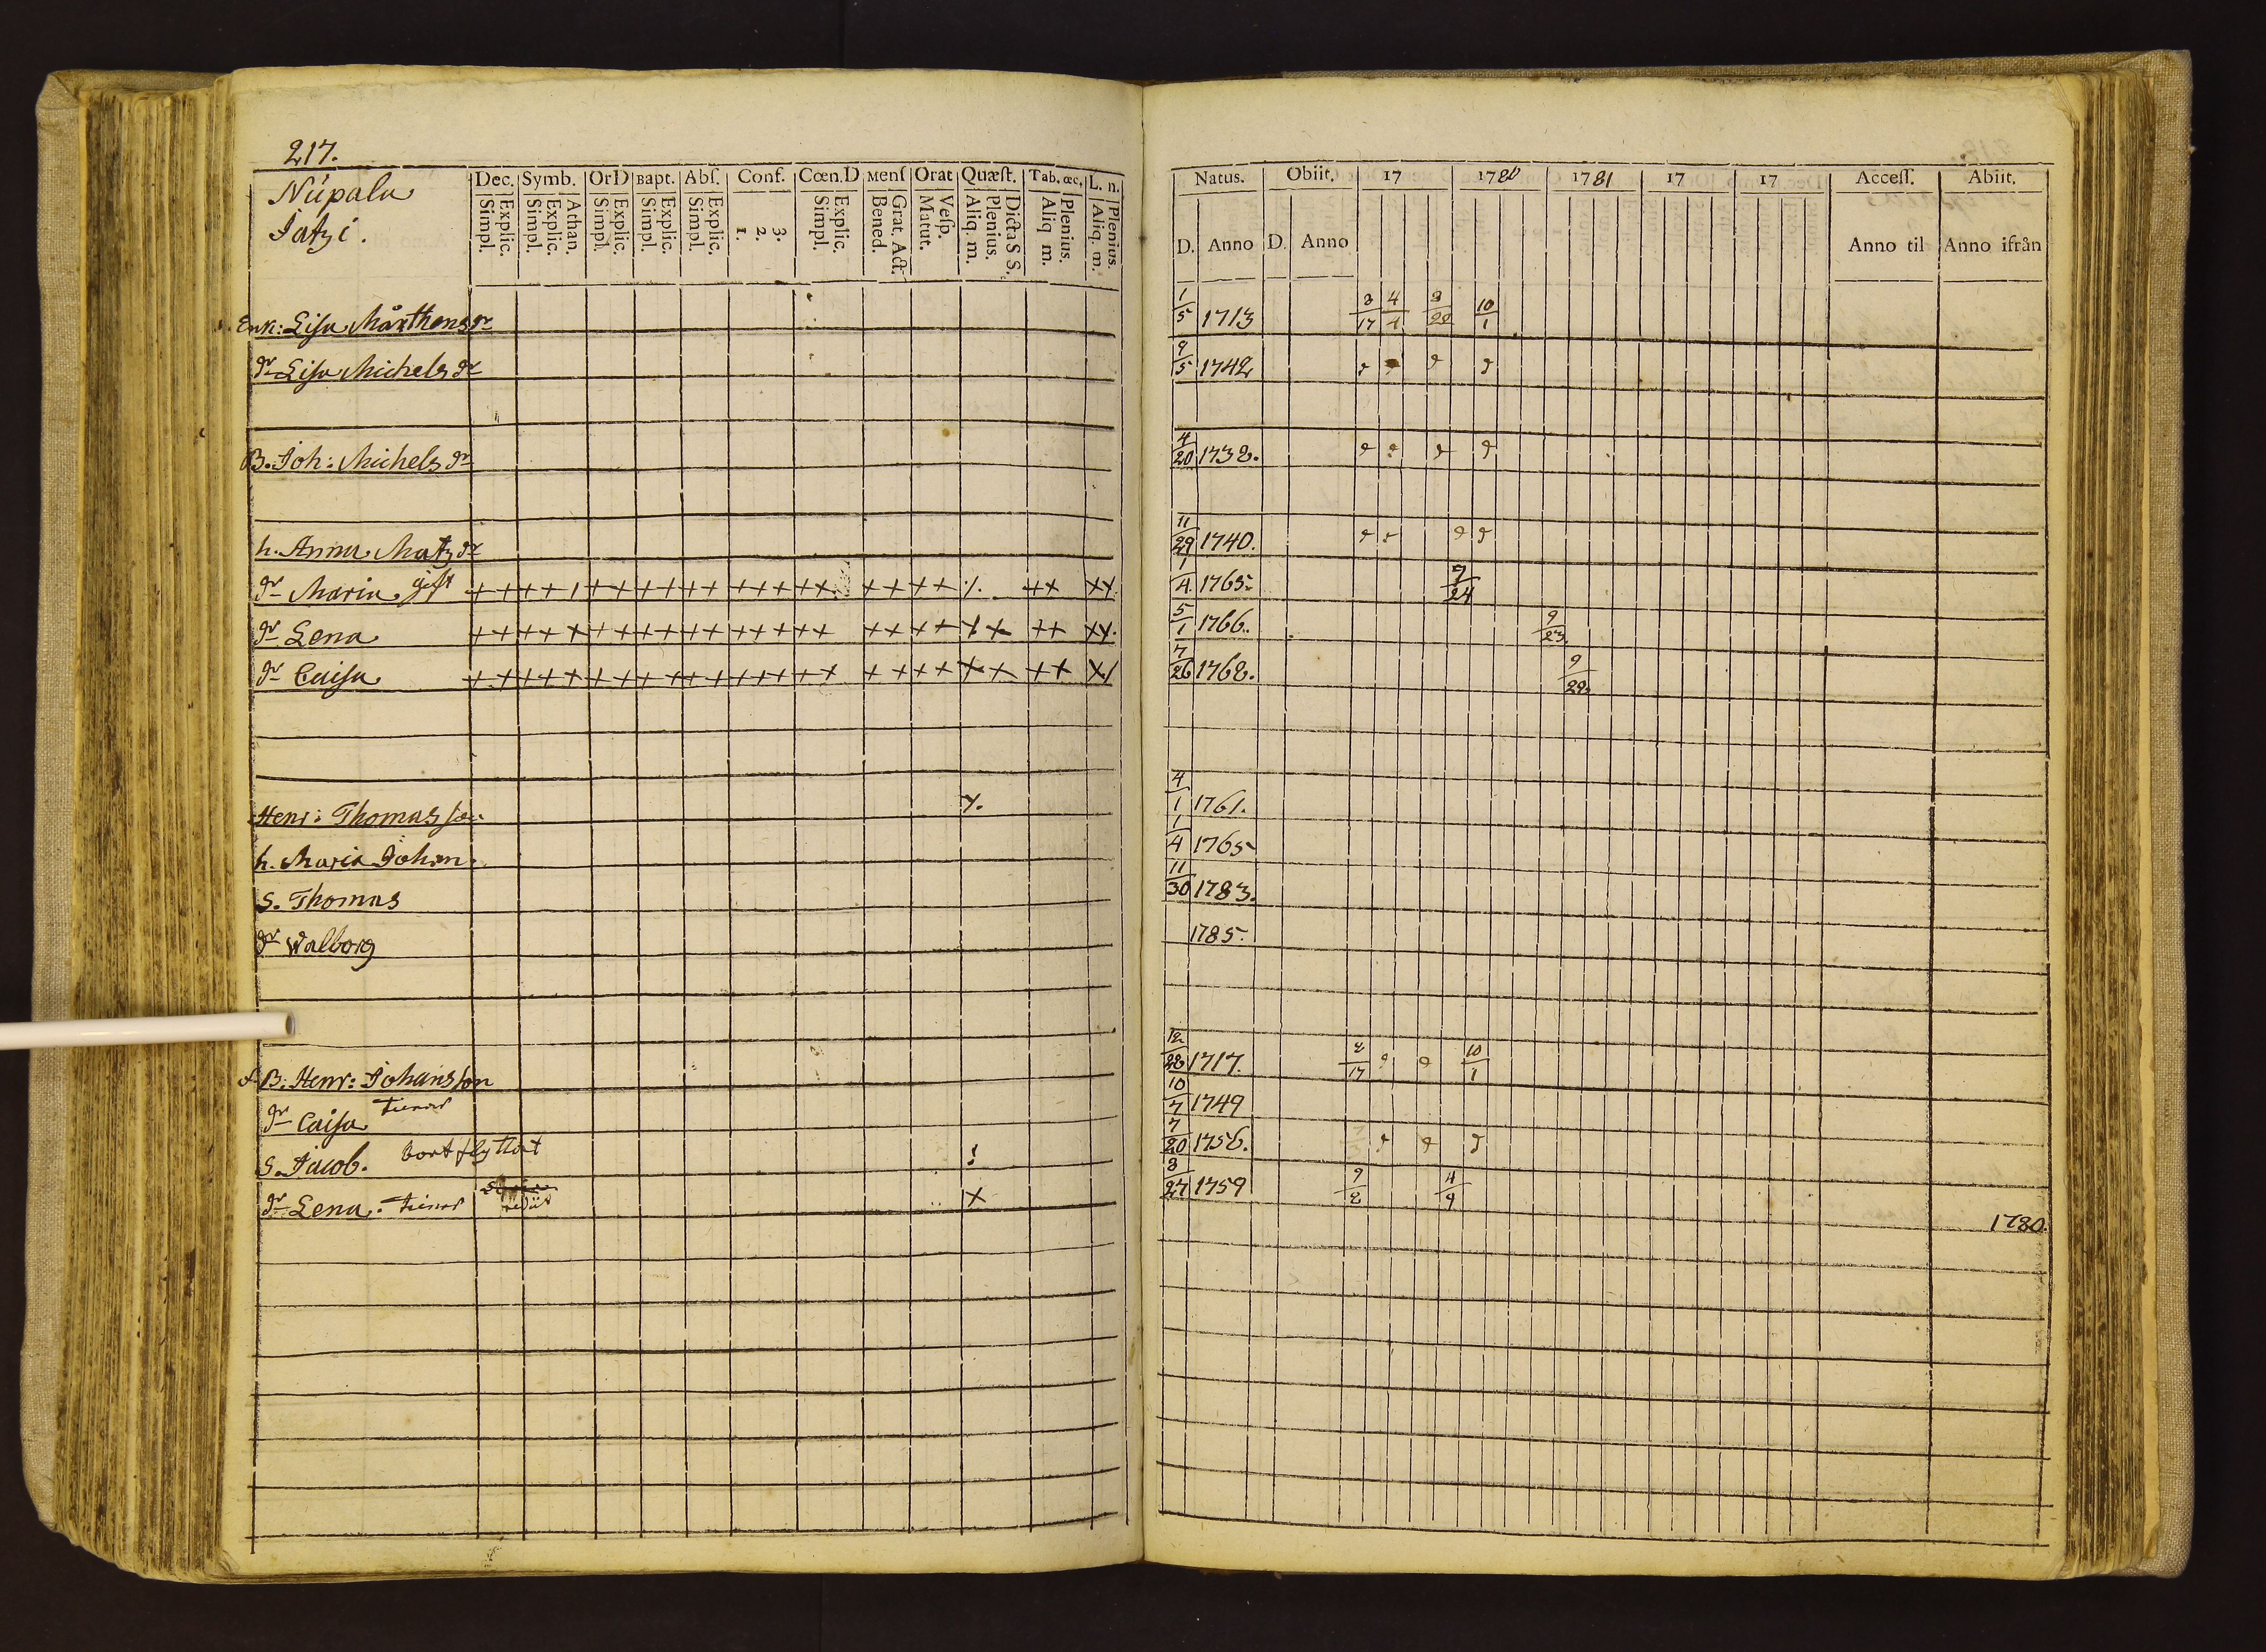 217.
Nüpala
Jatzi.
Dec. Symb. OrD Bapt. Abſ. Conf. Cœn.D Menſ Orat Quæſt. Tab. œc. L. n.
Explic. Simpl. Athan. Explic. Simpl. Explic. Simpl. Explic. Simpl. Explic. Simpl. 3. 2. 1. Explic. Simpl. Grat. Act. Bened. Veſp. Matut. Dicta S S. Plenius. Aliq. m. Plenius. Aliq m. Plenius. Aliq. m.
Natus. Obiit. 17 1780 1781 17 17 Acceſſ. Abiit.
D. Anno D. Anno Anno til Anno ifrån
Enk: Lisa Mårthens dr 1/5 1713 10/1
dr Lisa Michels dr 9/5 1742
B. Joh: Michels dr 4/20 1738.
h. Anna Matz dr 11/29 1740.
dr Maria gift + + + + + + + + + + + + + + + + + + + + 1/4 1765. 7/24
dr Lena + + + + + + + + + + + + + + + + + + + + 5/1 1766. 9/23.
dr Caisa + + + + + + + + + + + + + + + + + + + + 7/26 1768. 9/29
Henr: Thomasson 4/1 1761.
h. Maria Johan. 1/4 1765
S. Thomas 11/30 1783.
dr Walborg 1785.
B. Henr: Johansson 12/28 1717. 10/1
dr Caisa tienar 10/7 1749
S. Jacob. bortflyttat 7/20 1756.
dr Lena. tienar rediit + 8/27 1759 9/2 4/9
1780.